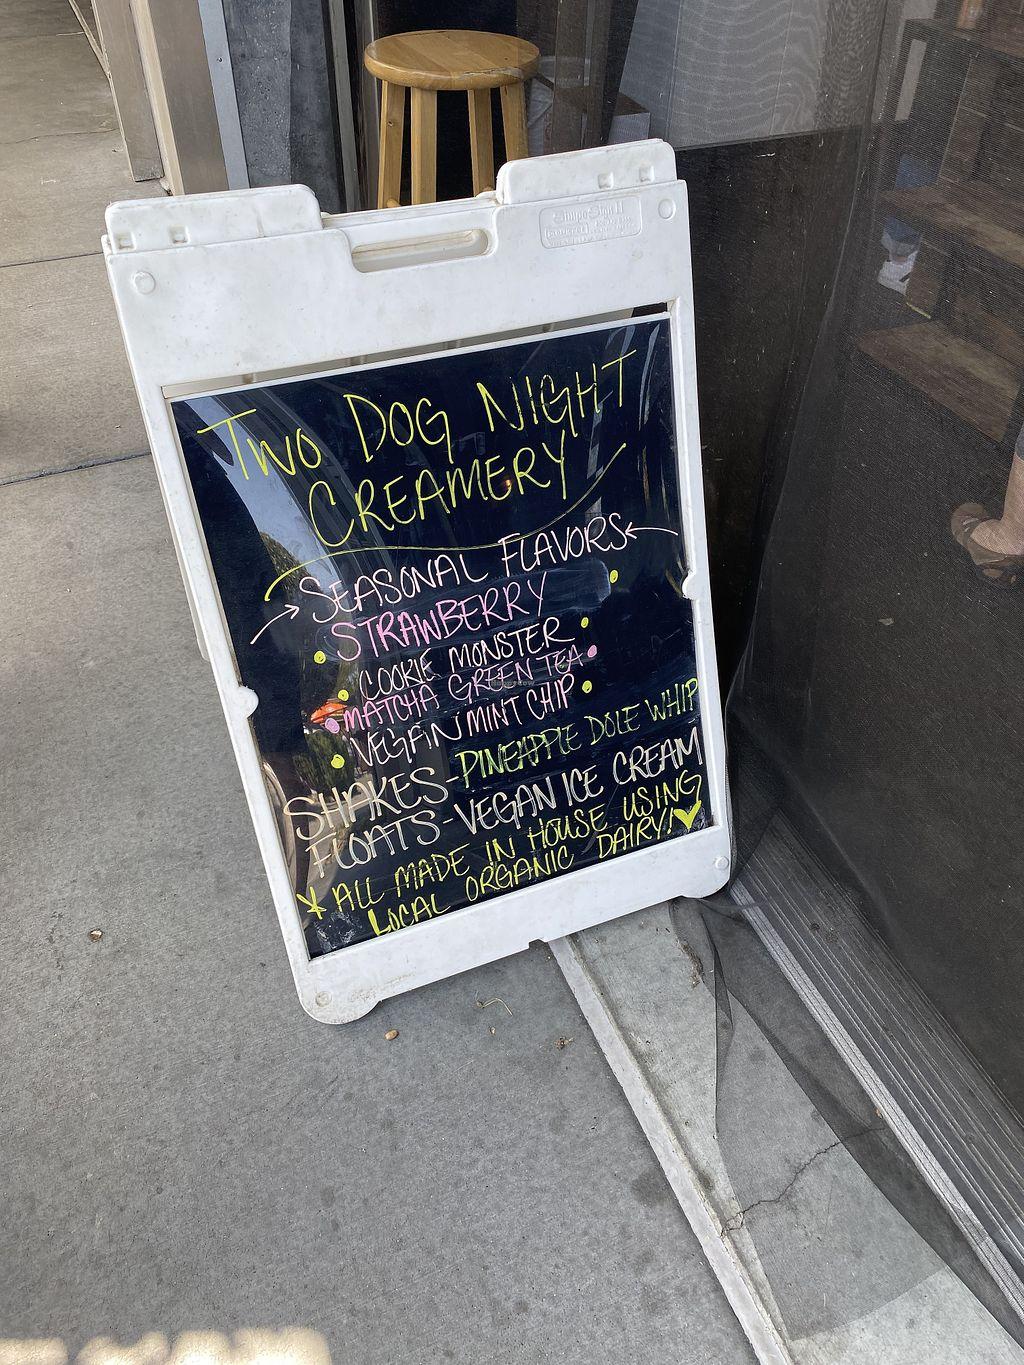 TWO DOG NIGHT
CREAMERY
SEASONAL FLAVORS
STRAWBERRY
COOKIE MONSTER
MATCHA GREEN TEA
VEGAN MINT CHIP
SHAKES-PINEAPPLE DOLE WHIP
FLOATS-VEGAN ICE CREAM
* ALL MADE IN HOUSE USING
LOCAL ORGANIC DAIRY!